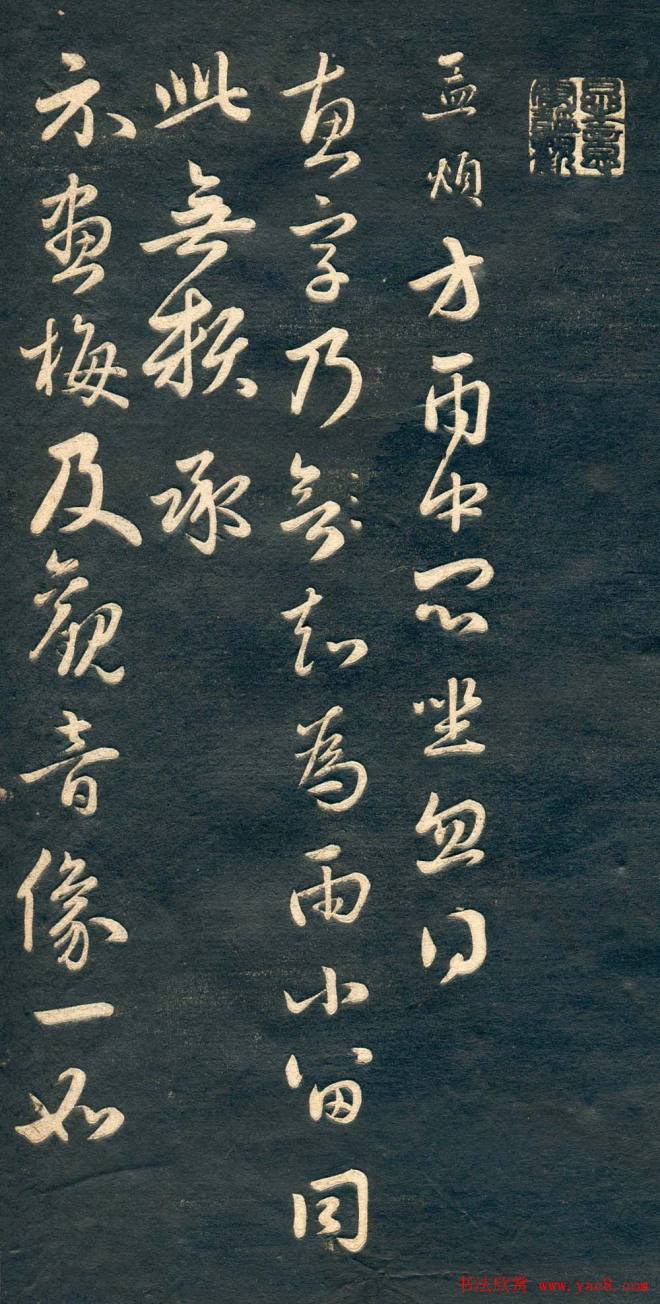 孟頫方雨中悶坐忽得
惠字乃知為雨小留同
此無賴承
示畫梅及觀音像一如
书法欣赏 www.yac8.com